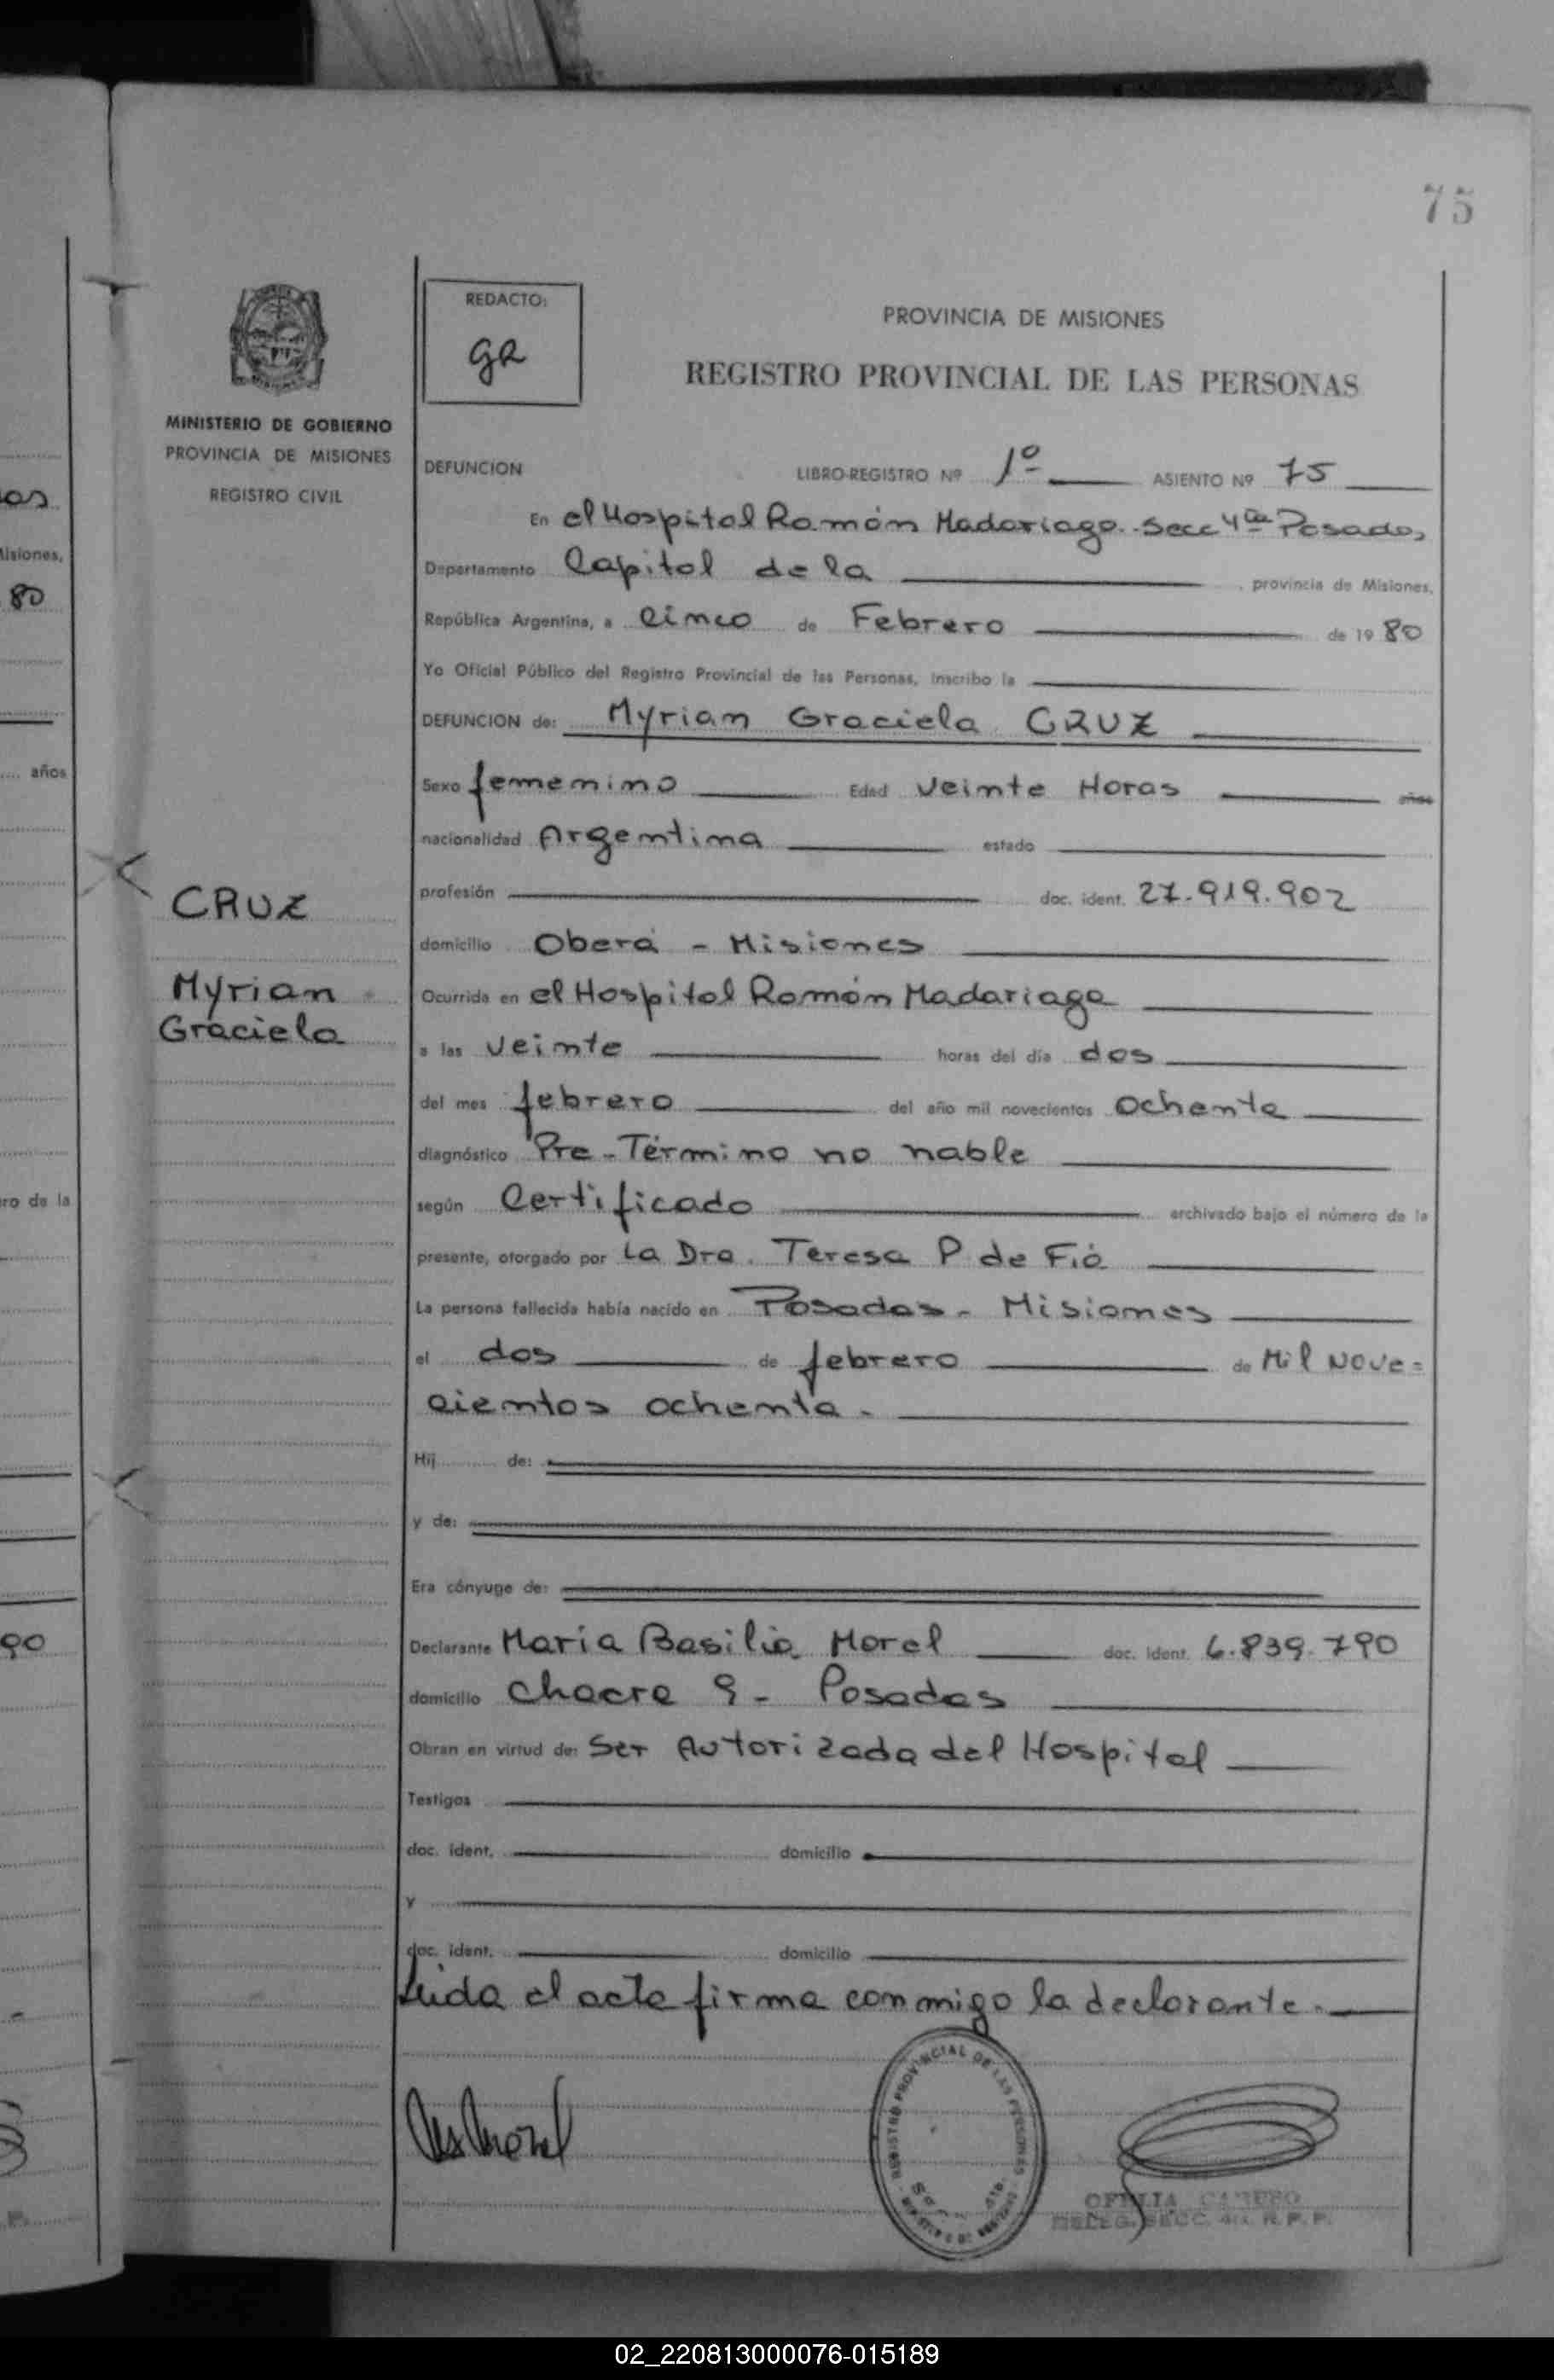 75
REDACTO:
gR
PROVINCIA DE MISIONES
REGISTRO PROVINCIAL DE LAS PERSONAS
MINISTERIO DE GOBIERNO
PROVINCIA DE MISIONES
REGISTRO CIVIL
DEFUNCION LIBRO-REGISTRO Nº 1º ASIENTO Nº 75
En el Hospital Ramón Madariaga. Secc 4ta Posadas,
Departamento Capital de la provincia de Misiones,
República Argentina, a Cinco de Febrero de 19 80
Yo Oficial Público del Registro Provincial de las Personas, inscribo la
DEFUNCION de: Myrian Graciela CRUZ
Sexo femenino Edad Veinte Horas años
nacionalidad Argentina estado
CRUZ
profesión doc. ident. 27.919.902
domicilio Oberá - Misiones
Myrian
Graciela
Ocurrida en el Hospital Ramón Madariaga
a las Veinte horas del día dos
del mes febrero del año mil novecientos Ochenta
diagnóstico Pre-Término no nable
según Certificado archivado bajo el número de la
presente, otorgado por La Dra. Teresa P. de Fió
La persona fallecida había nacido en Posadas - Misiones
el dos de febrero de Mil Nove=
cientos ochenta.
Hij de:
y de:
Era cónyuge de:
Declarante María Basilia Morel doc. ident. 6.839.790
domicilio Chacra 9 - Posadas
Obran en virtud de: Ser Autorizada del Hospital
Testigos
doc. ident. domicilio
y
doc. ident. domicilio
Leida el acta firma conmigo la declarante.
REGISTRO PROVINCIAL DE LAS PERSONAS
OFELIA CARUSO
DELEG. SECC. 4ta. R. P. P.
Misiones,
80
años
ro de la
90
02_220813000076-015189